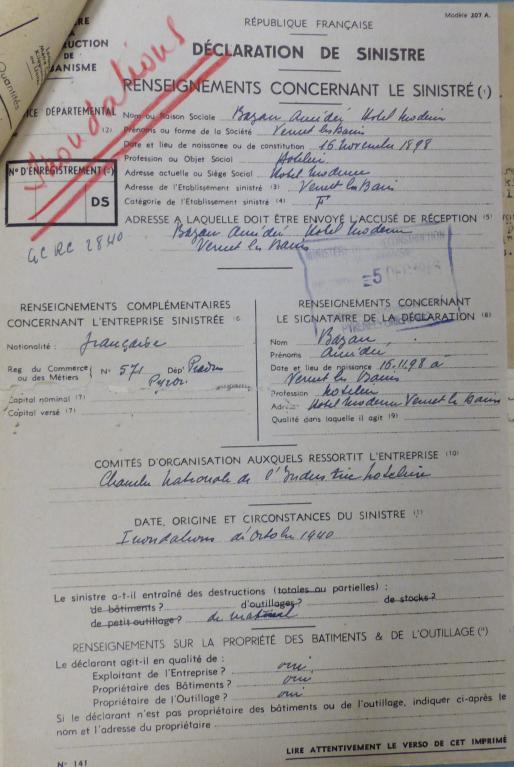 Modèle 207 A.
RÉPUBLIQUE FRANÇAISE
DÉCLARATION DE SINISTRE
RENSEIGNEMENTS CONCERNANT LE SINISTRÉ (1)
Inondations
Quantités
DE
DÉPARTEMENTAL
(2)
Nom ou Raison Sociale Bazan Amédée Hotel Moderne
Prénoms ou forme de la Société Vernet les Bains
Date et lieu de naissance ou de constitution 16 novembre 1898
Profession ou Objet Social Hotelier
Adresse actuelle ou Siège Social Hotel Moderne
Adresse de l'Etablissement sinistré (3) Vernet les Bains
Catégorie de l'Etablissement sinistré (4)
N° D'ENREGISTREMENT
DS
GC RC 2840
ADRESSE A LAQUELLE DOIT ÊTRE ENVOYÉ L'ACCUSÉ DE RÉCEPTION (5)
Bazan Amédée Hotel Moderne
Vernet les Bains
RENSEIGNEMENTS COMPLÉMENTAIRES
CONCERNANT L'ENTREPRISE SINISTRÉE
Nationalité : française
Reg du Commerce ou des Métiers N° 571 Dépt
Capital nominal (7)
Capital versé (7)
RENSEIGNEMENTS CONCERNANT
LE SIGNATAIRE DE LA DÉCLARATION (8)
Nom Bazan
Prénoms Amédée
Date et lieu de naissance 16.11.98 a
Vernet les Bains
Profession hotelier
Hotel Moderne Vernet les Bains
Qualité dans laquelle il agit (9)
COMITÉS D'ORGANISATION AUXQUELS RESSORTIT L'ENTREPRISE (10)
Chambre Nationale de l'Industrie hoteliere
DATE, ORIGINE ET CIRCONSTANCES DU SINISTRE
Inondations d'Octobre 1940
Le sinistre a-t-il entraîné des destructions (totales ou partielles) :
de bâtiments ? d'outillages ? de stocks ?
de petit outillage ? de matériel
RENSEIGNEMENTS SUR LA PROPRIÉTÉ DES BATIMENTS & DE L'OUTILLAGE
Le déclarant agit-il en qualité de :
Exploitant de l'Entreprise ? oui
Propriétaire des Bâtiments ? oui
Propriétaire de l'Outillage ? oui
Si le déclarant n'est pas propriétaire des bâtiments ou de l'outillage, indiquer ci-après le
nom et l'adresse du propriétaire
N° 141
LIRE ATTENTIVEMENT LE VERSO DE CET IMPRIMÉ